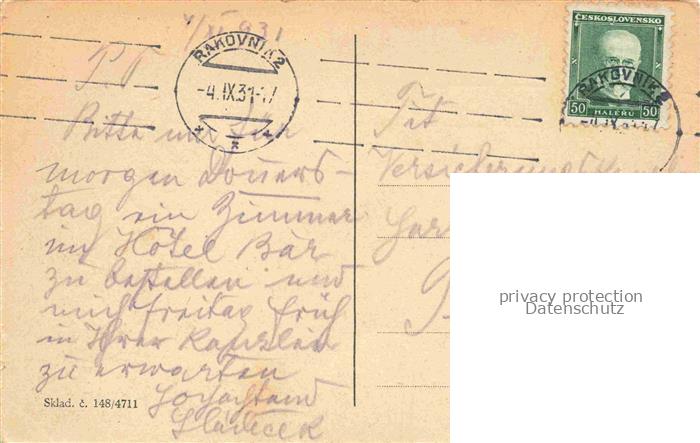 4/IX 931
P.T.
Bitte mir für
morgen Donners-
tag ein Zimmer
im Hotel Bär
zu bestellen und
mich Freitag früh
in Ihrer Kanzlei
zu erwarten
Hochachtend
Sklad. č. 148/4711
RAKOVNÍK 2
-4.IX.31-17
ČESKOSLOVENSKO
50 50
HALÉŘŮ
RAKOVNÍK 2
Tit
privacy protection
Datenschutz